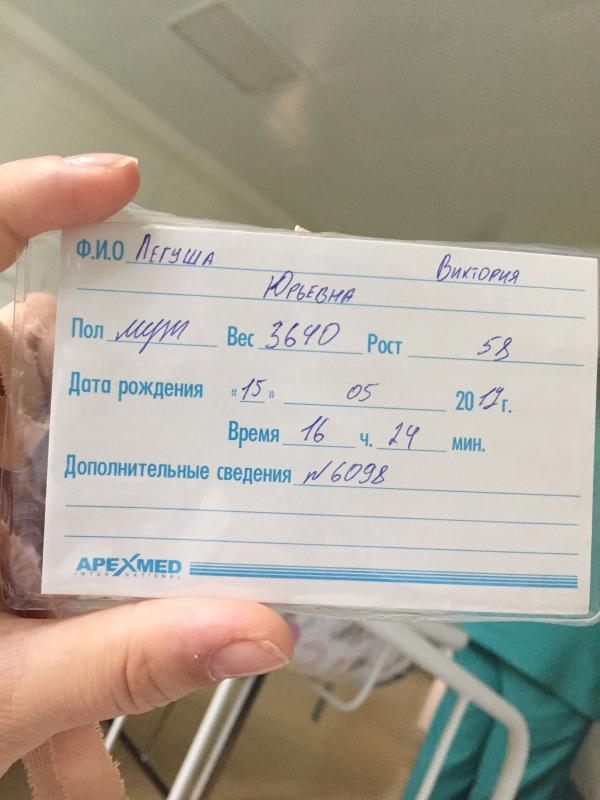 Ф.И.О Легуша Виктория
Юрьевна
Пол муж Вес 3640 Рост 58
Дата рождения «15» 05 2017г.
Время 16 ч. 24 мин.
Дополнительные сведения N6098
APEXMED
INTERNATIONAL